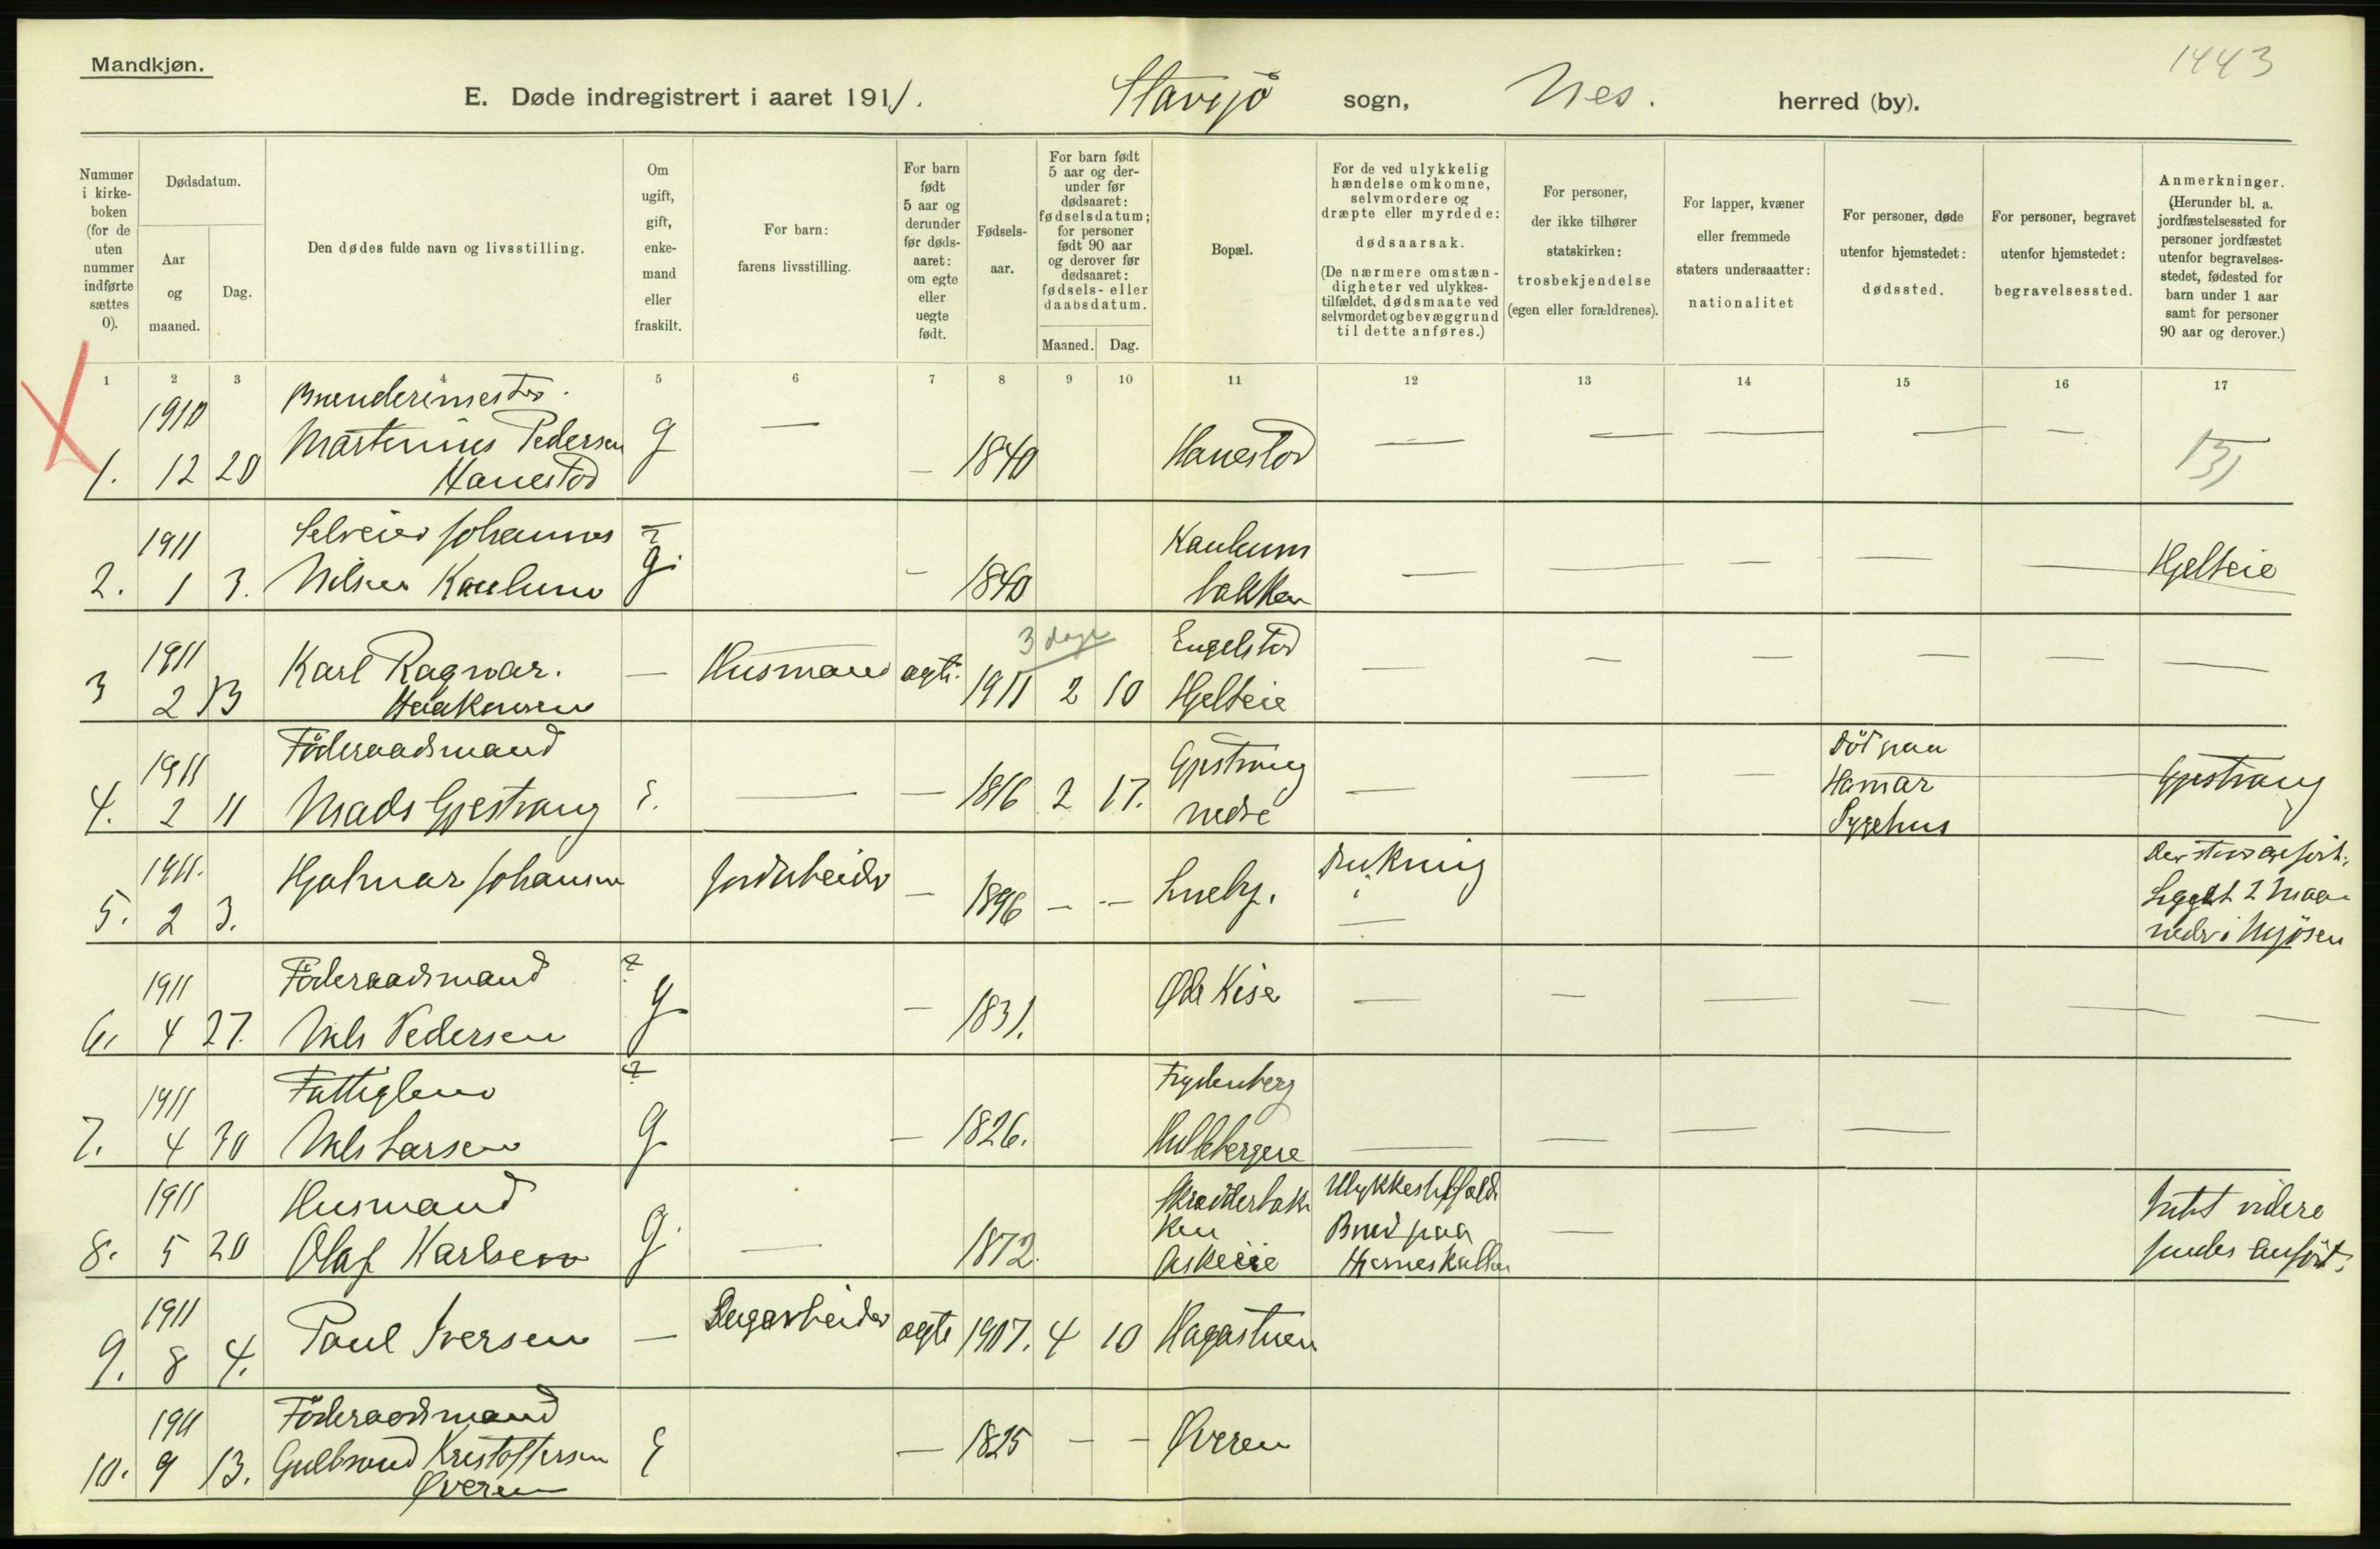 Mandkjøn.
1443
E. Døde indregistrert i aaret 1911. Stavsjø sogn, Nes. herred (by).
Nummer i kirkeboken (for de uten nummer indførte sættes 0).
Dødsdatum.
Aar og maaned.
Dag.
Den dødes fulde navn og livsstilling.
Om ugift, gift, enkemand eller fraskilt.
For barn: farens livsstilling.
For barn født 5 aar og derunder før dødsaaret: om egte eller uegte født.
Fødselsaar.
For barn født 5 aar og derunder før dødsaaret: fødselsdatum; for personer født 90 aar og derover før dødsaaret: fødsels- eller daabsdatum.
Maaned. Dag.
Bopæl.
For de ved ulykkelig hændelse omkomne, selvmordere og dræpte eller myrdede: dødsaarsak. (De nærmere omstændigheter ved ulykkestilfældet, dødsmaate ved selvmordet og bevæggrund til dette anføres.)
For personer, der ikke tilhører statskirken: trosbekjendelse (egen eller forældrenes).
For lapper, kvæner eller fremmede staters undersaatter: nationalitet
For personer, døde utenfor hjemstedet: dødssted.
For personer, begravet utenfor hjemstedet: begravelsessted.
Anmerkninger. (Herunder bl. a. jordfæstelsessted for personer jordfæstet utenfor begravelsesstedet, fødested for barn under 1 aar samt for personer 90 aar og derover.)
1 2 3 4 5 6 7 8 9 10 11 12 13 14 15 16 17
1. 1910 12 20 Martinius Pedersen Hanestad g — — 1840 Hanestad — — — — —
2. 1911 1 3. Selveier Johannes Nilsen Kaulum ? g. — 1840 Kaulum bakken — — — — — Hjelteie
3 1911 2 13 Karl Ragnvar. Haakensen — Husmand ægte 1911 2 10 3 dage Engelstad Hjelteie — — — — — —
4. 1911 2 11 Föderaadsmand Mads Gjestvang E. — — 1816 2 17. Gjestvang nedre — — — Död paa Hamar Sygehus — Gjestvang
5. 1911. 2 3. Hjalmar Johansen Jordarbeider — 1896 — — Lueby. Drukning — Legget 2 Maaneder i Mjøsen
6. 1911 4 27. Föderaadsmand Nils Pedersen ? g — 1831. Øde Kise — — — — — —
7. 1911 4 30 Fattiglem Nils Larsen ? g — 1826. Frydenberg — — — —
8. 1911 5 20 Husmand Olaf Karlsen g. — 1872. Skradderbakken Askeeie Ulykkestilfælde Brud paa Hjerneskallen — Intet videre findes anført.
9. 1911 8 4. Paul Iversen — Dagarbeider ægte 1907. 4 10 Hagastuen
10. 1911 9 13. Föderaadsmand Gulbrand Kristoffersen Øveren E — 1825 — — Øveren